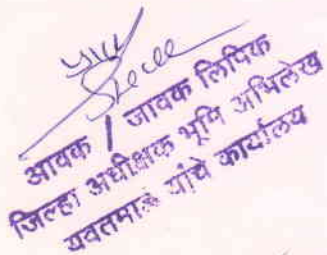 आवक / जावक लिपिक
जिल्हा अधीक्षक भूमि अभिलेख
यवतमाळ यांचे कार्यालय